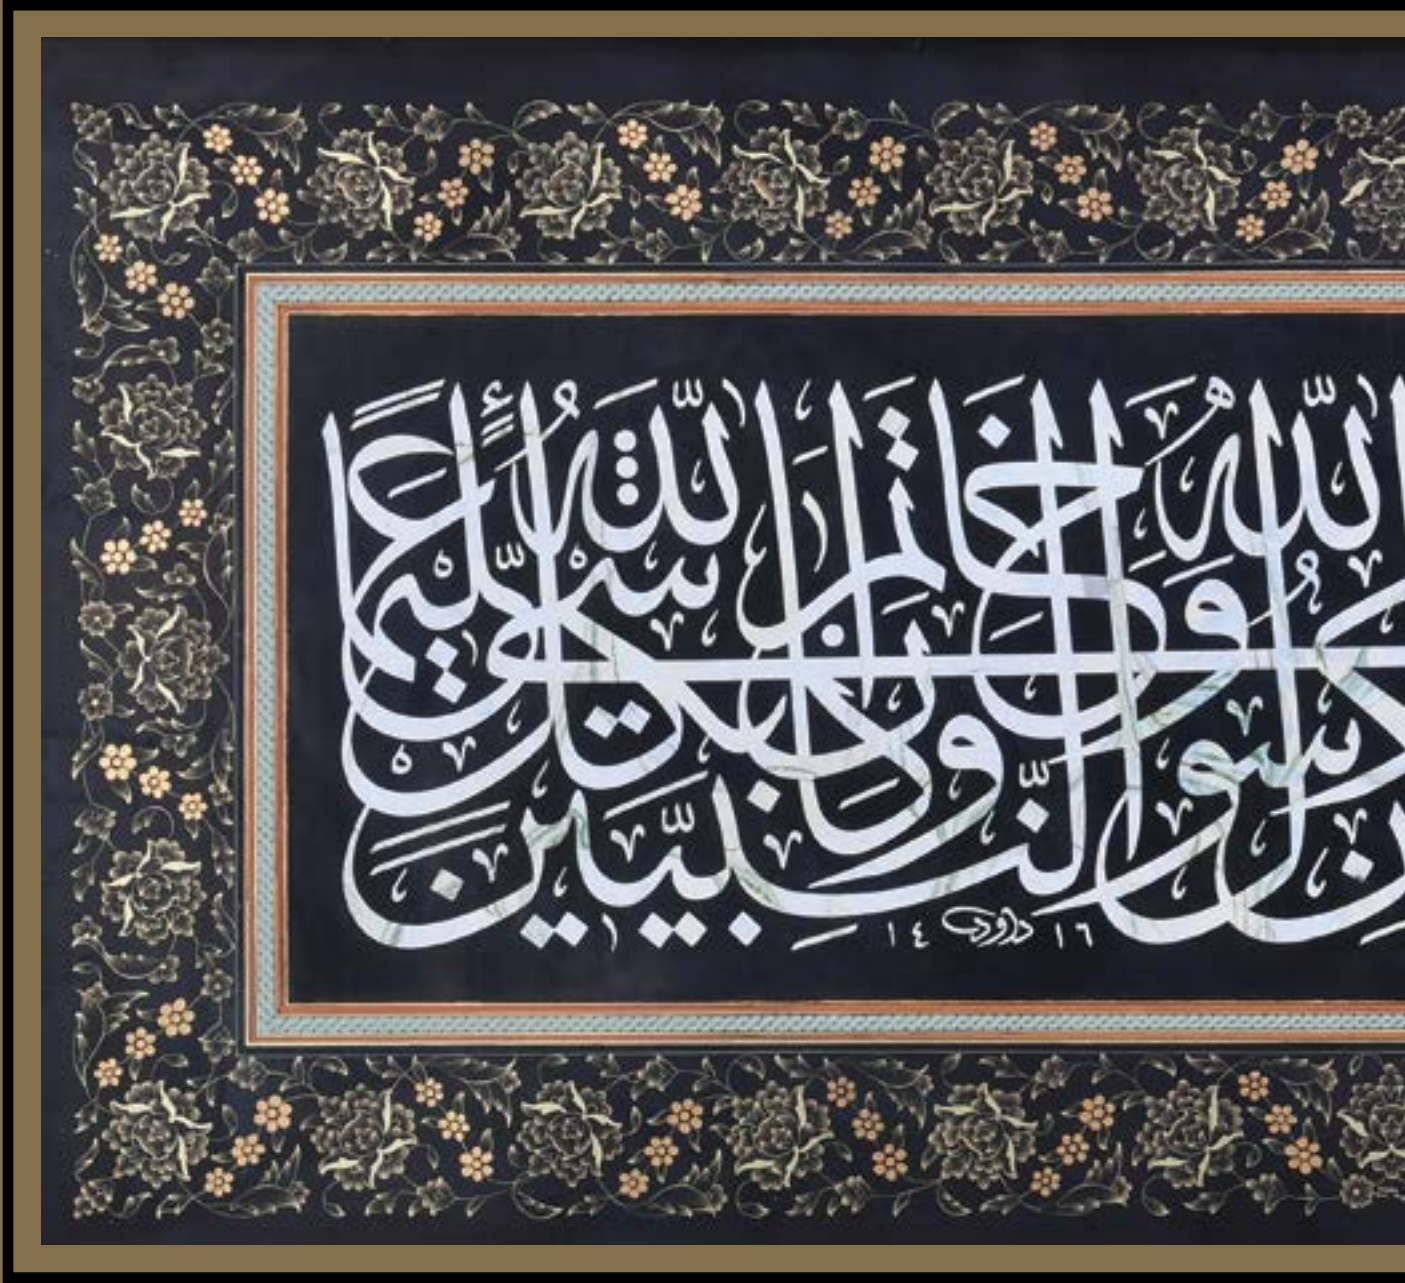 رسول الله وخاتم النبيين وكان الله بكل شيء عليما
١٤ داود ١٦